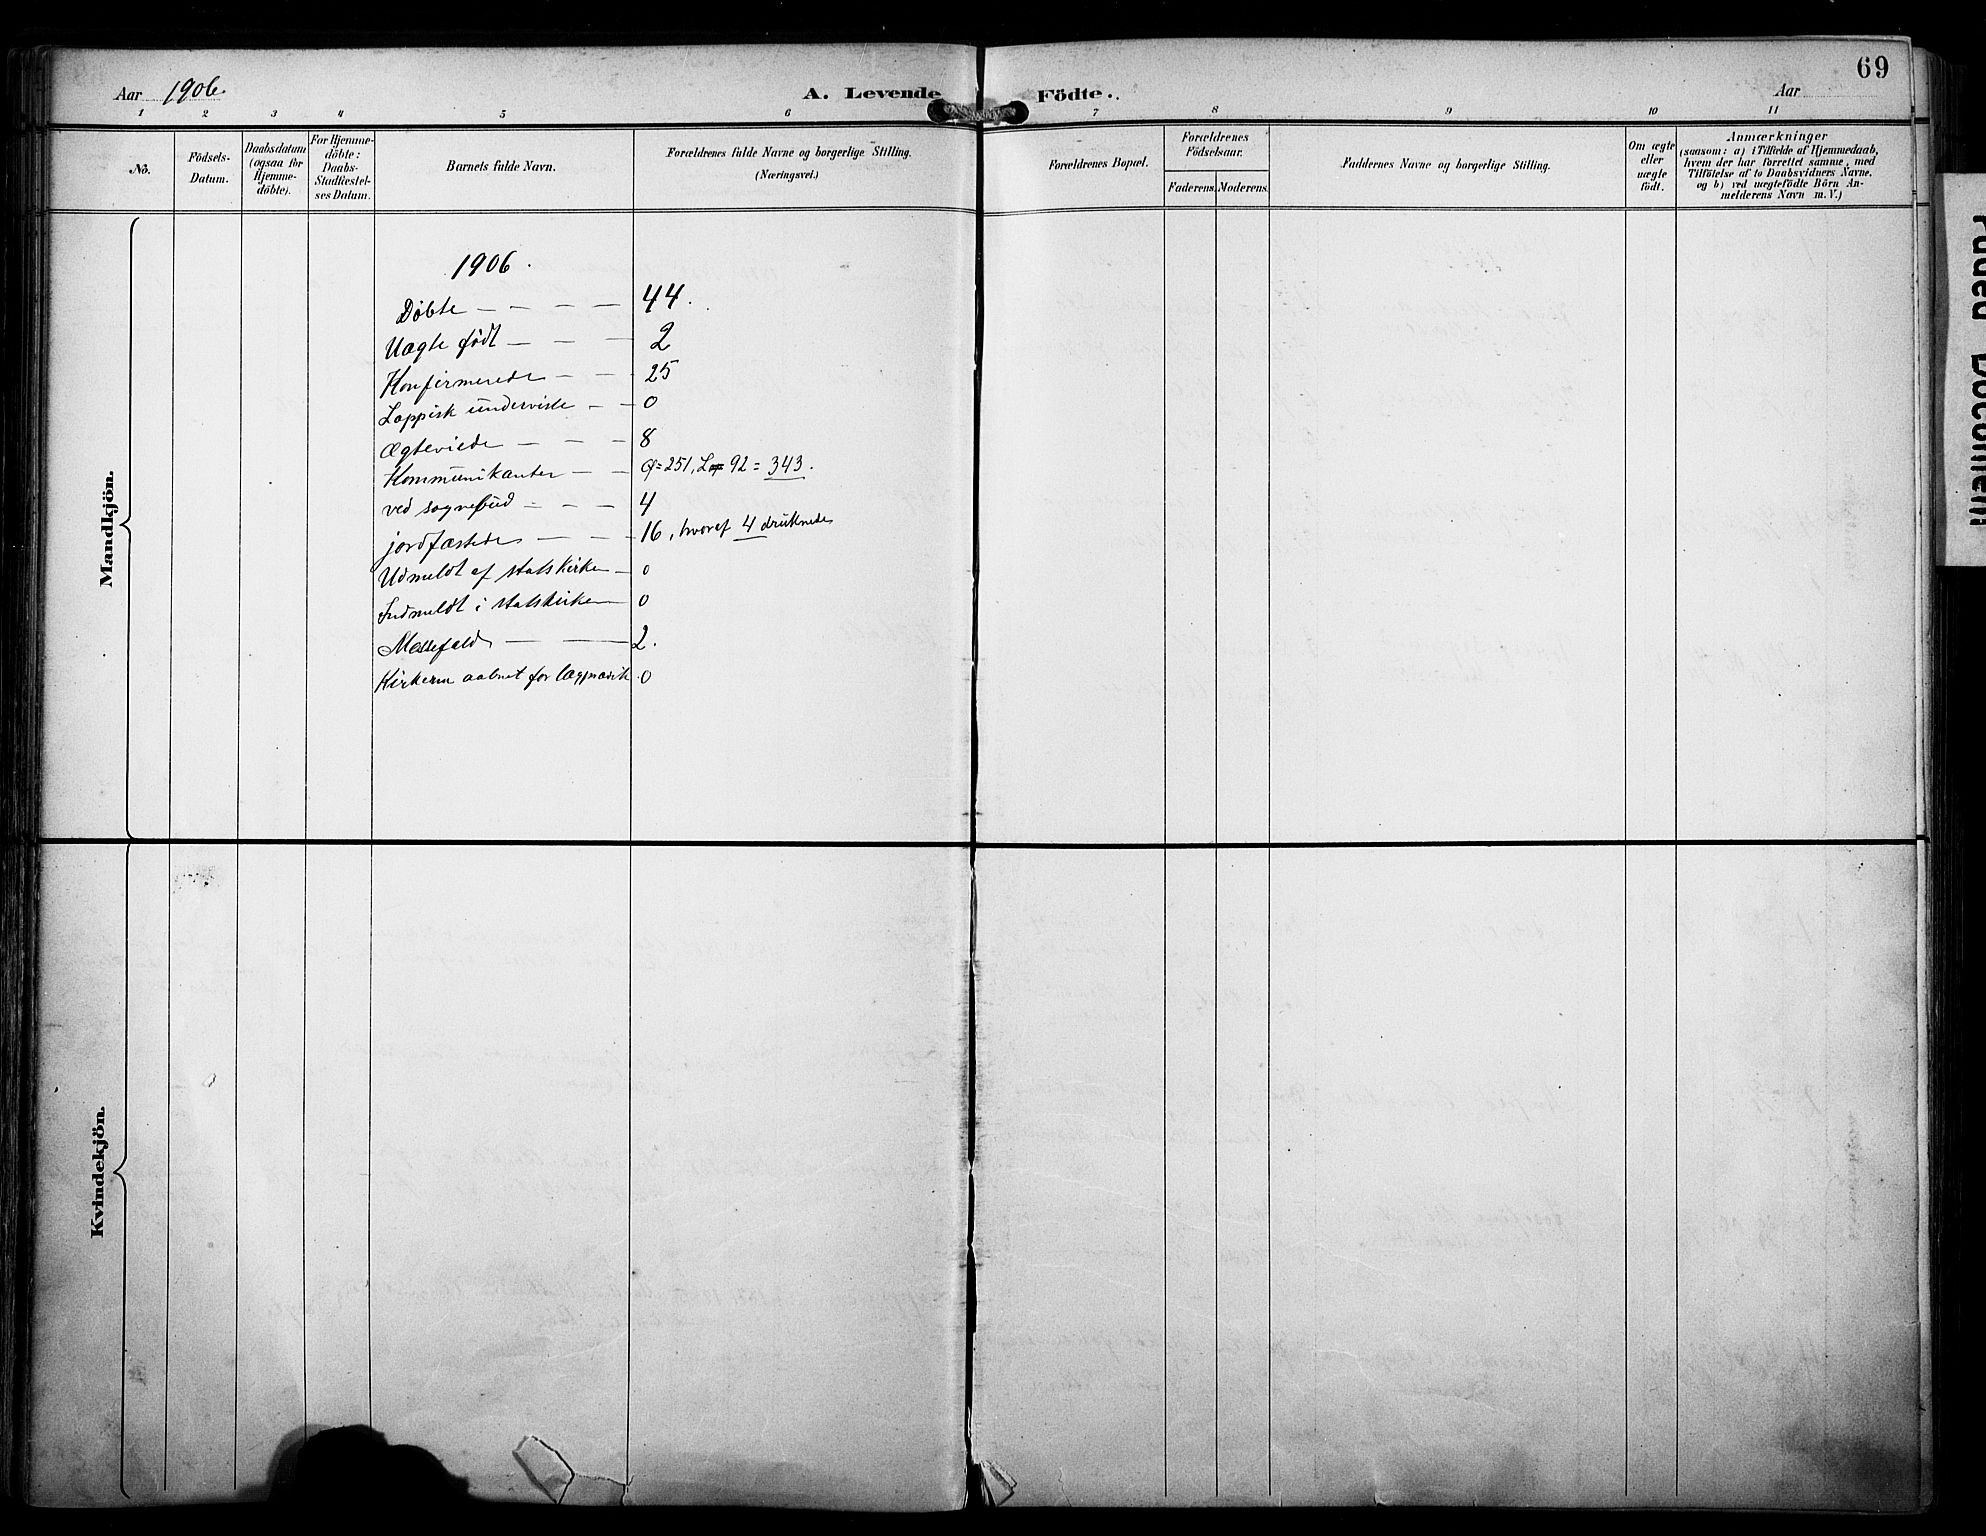 69
Aar 1906.
A. Levende Födte.
Aar
1 2 3 4 5 6 7 8 9 10 11
No.
Födsels-
Datum.
Daabsdatum
(ogsaa for
Hjemme-
döbte).
For Hjemme-
döbte:
Daabs-
Stadfæstel-
ses Datum.
Barnets fulde Navn.
Forældrenes fulde Navne og borgerlige Stilling.
(Næringsvei.)
Forældrenes Bopæl.
Forældrenes
Födselsaar.
Faderens. Moderens.
Faddernes Navne og borgerlige Stilling.
Om ægte
eller
uægte
födt.
Anmærkninger
(saasom: a) i Tilfælde af Hjemmedaab,
hvem der har forrettet samme, med
Tilföielse af to Daabsvidners Navne,
og b) ved uægtefödte Börn An-
melderens Navn m. V.)
Mandkjön.
1906.
Døbte — — — — 44.
Uægte født — — — 2
Konfirmerede — — 25
Lappisk underviste — — 0
Ægteviede — — — 8
Kommunikanter — — 251, 92 = 343.
ved sognebud — — — 4
jordfæstede — — — 16, hvoraf 4 druknede
Udmeldt af statskirken — 0
Indmeldt i statskirken 0
Messefald — — 2.
Kirken aabnet for lægprædik. 0
Kvindekjön.
Faded Document